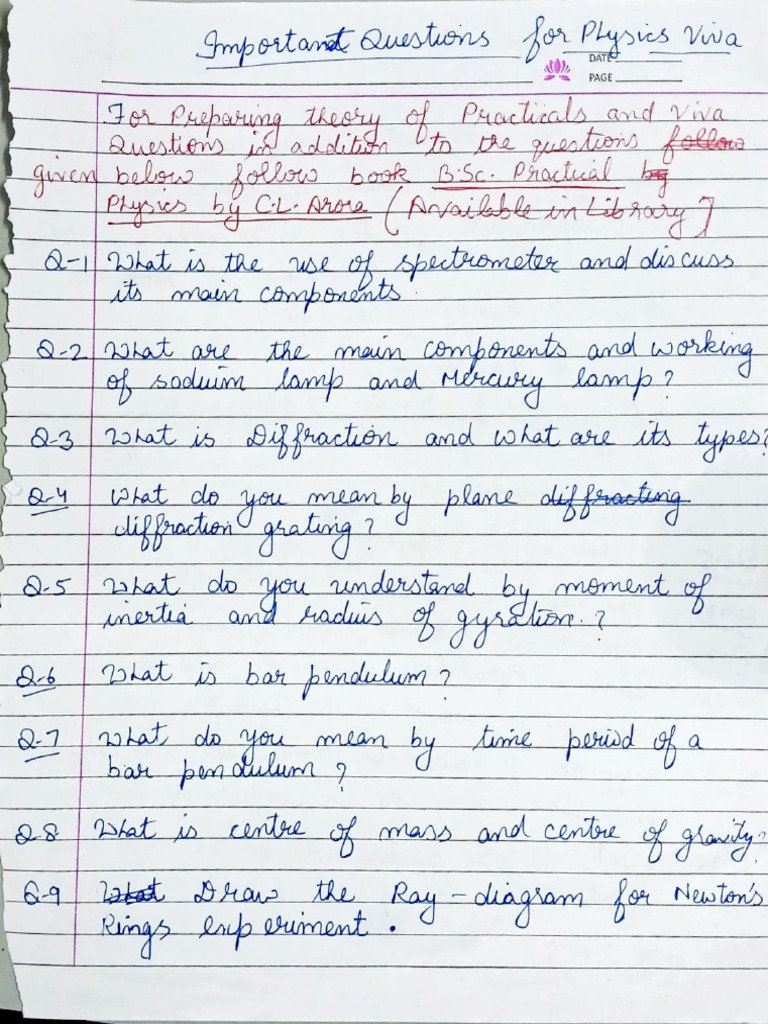 Important Questions for Physics Viva
DATE
PAGE
For Preparing theory of Practicals and Viva
Questions in addition to the questions follow
given below follow book B.Sc. Practical by
Physics by C.L. Arora (Available in Library)
Q-1 What is the use of spectrometer and discuss
its main components.
Q-2 What are the main components and working
of soduim lamp and Mercury lamp?
Q-3 What is Diffraction and what are its types?
Q-4 What do you mean by plane diffracting
diffraction grating?
Q-5 What do you understand by moment of
inertia and radius of gyration.?
Q-6 What is bar pendulum?
Q-7 What do you mean by time period of a
bar pendulum?
Q-8 What is centre of mass and centre of gravity?
Q-9 What Draw the Ray-diagram for Newton's
Rings experiment.